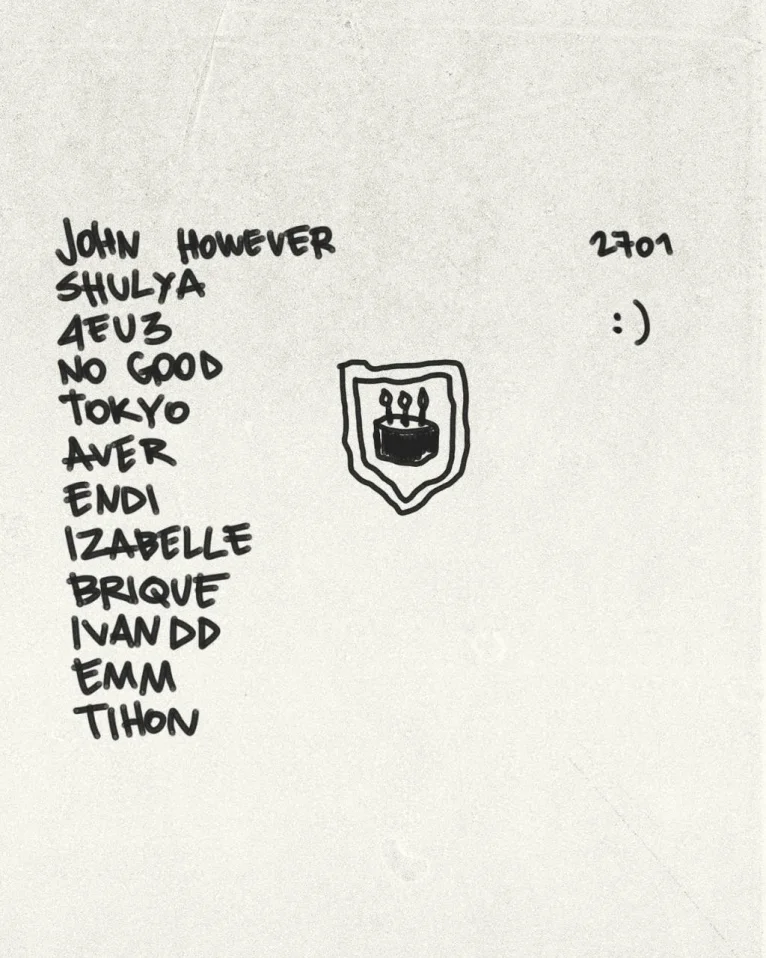 JOHN HOWEVER 2701
SHULYA
4EU3 :)
NO GOOD
TOKYO
AVER
ENDI
IZABELLE
BRIQUE
IVAN DD
EMM
TIHON